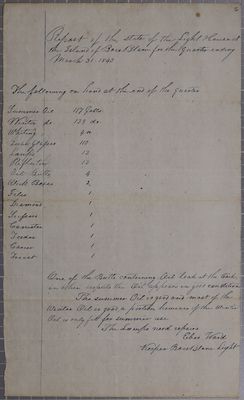 Report of the State of the Light House at
the Island of Bois Blanc for the Quarter ending
March 31 1843
The following on hand at the end of the quarter
Summer Oil 117 Galls.
Winter do. 138 do.
Whiting
Tube Glasses 110
Lamps 13
Reflectors 13
Oil Butts 4
Wick Boxes 2
Files 1
Diamond 1
Scissors 1
Canister 1
Feeder 1
1
1
One of the Butts containing Oil leak at the
in other respects the Oil appears in good condition
The summer Oil is good and most of the
Winter Oil is good a portion however of the Winter
Oil is only fit for summer use
The Lamps need repairs
Eber Ward
Keeper Light